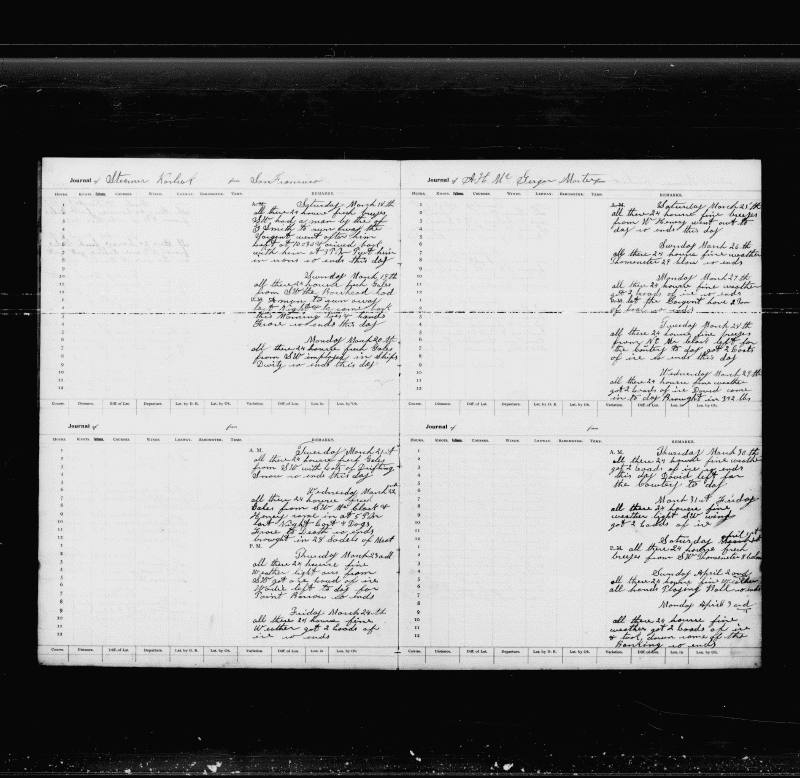 Journal of Steamer Karluk from San Francisco
HOURS. KNOTS. Fathoms. COURSES. WINDS. LEEWAY. BAROMETER. TEMP. REMARKS.
A.M. Saturday March 18th
all these 24 houre fresh breezes
SW had a man by the of
Smith to run away the
Sargent went after him
last at 10-30 arived back
with him at 3 PM Put him
in irons so ends this day
Sunday March 19th
all these 24 houre fresh Gales
from SW the Bowhead had
A man to run away
last Night & he came back
this Morning & hands
Froze so ends this day
Monday March 20th
all these 24 houre fresh Gales
from SW imployed in Ships
Duity so ends this day
Course. Distance. Diff. of Lat. Departure. Lat. by D. R. Lat. by Ob. Variation. Diff. of Lon. Lon. in Lon. by Ob.
Journal of from
HOURS. KNOTS. Fathoms. COURSES. WINDS. LEEWAY. BAROMETER. TEMP. REMARKS.
A. M. Tuesday March 21st
all these 24 houre fresh Gales
from SW with lots of Drifting
Snow so ends this day
Wednesday March 22nd
all these 24 houre fresh
Gales from SW Mr black &
Honey came in at 5 PM
last Night Lost 4 Dogs
Froze to Death so ends
brought in 28 Sadels of Meat
P. M.
Thursday March 23rd
all these 24 houre fine
Weather light air from
SW got one load of ice
left to day for
Point Barrow so ends
Friday March 24th
all these 24 houre fine
Weather got 2 loads of
ice so ends
Course. Distance. Diff. of Lat. Departure. Lat. by D. R. Lat. by Ob. Variation. Diff. of Lon. Lon. in Lon. by Ob.
Journal of A. H. Mc Gregor Master from
HOURS. KNOTS. Fathoms. COURSES. WINDS. LEEWAY. BAROMETER. TEMP. REMARKS.
A. M. Saturday March 25th
all these 24 houre fine breezes
from W Henry went out to
day so ends this day
Sunday March 26th
all these 24 houre fine weather
Thomenster 29 below so ends
Monday March 27th
all these 24 houre fine weather
got 2 loads of ice so ends
let the Sargent have 2 Ton
of coal so ends
Tuesday March 28th
all these 24 houre fine breezes
from NE Mr black left for
the country to day got 2 loads
of ice so ends this day
Wednesday March 29th
all these 24 houre fine weather
got 2 loads of ice David came
in to day Brought in 392 lbs
Course. Distance. Diff. of Lat. Departure. Lat. by D. R. Lat. by Ob. Variation. Diff. of Lon. Lon. in Lon. by Ob.
Journal of from
HOURS. KNOTS. Fathoms. COURSES. WINDS. LEEWAY. BAROMETER. TEMP. REMARKS.
A. M. Thursday March 30th
all these 24 houre fine weather
got 2 loads of ice so ends
this day David left for
the Country to day
March 31st Friday
all these 24 houre fine
weather light SW wing
got 2 loads of ice
Saturday April 1st
P. M. all these 24 houre fresh
breezes from SW Thomenster 8 below
Sunday April 2nd
all these 24 houre fine Weather
all hands Playing Ball so ends
Monday April 3rd
all these 24 houre fine
weather got 2 loads of ice
& took down some of the
Banking so ends
Course. Distance. Diff. of Lat. Departure. Lat. by D. R. Lat. by Ob. Variation. Diff. of Lon. Lon. in Lon. by Ob.